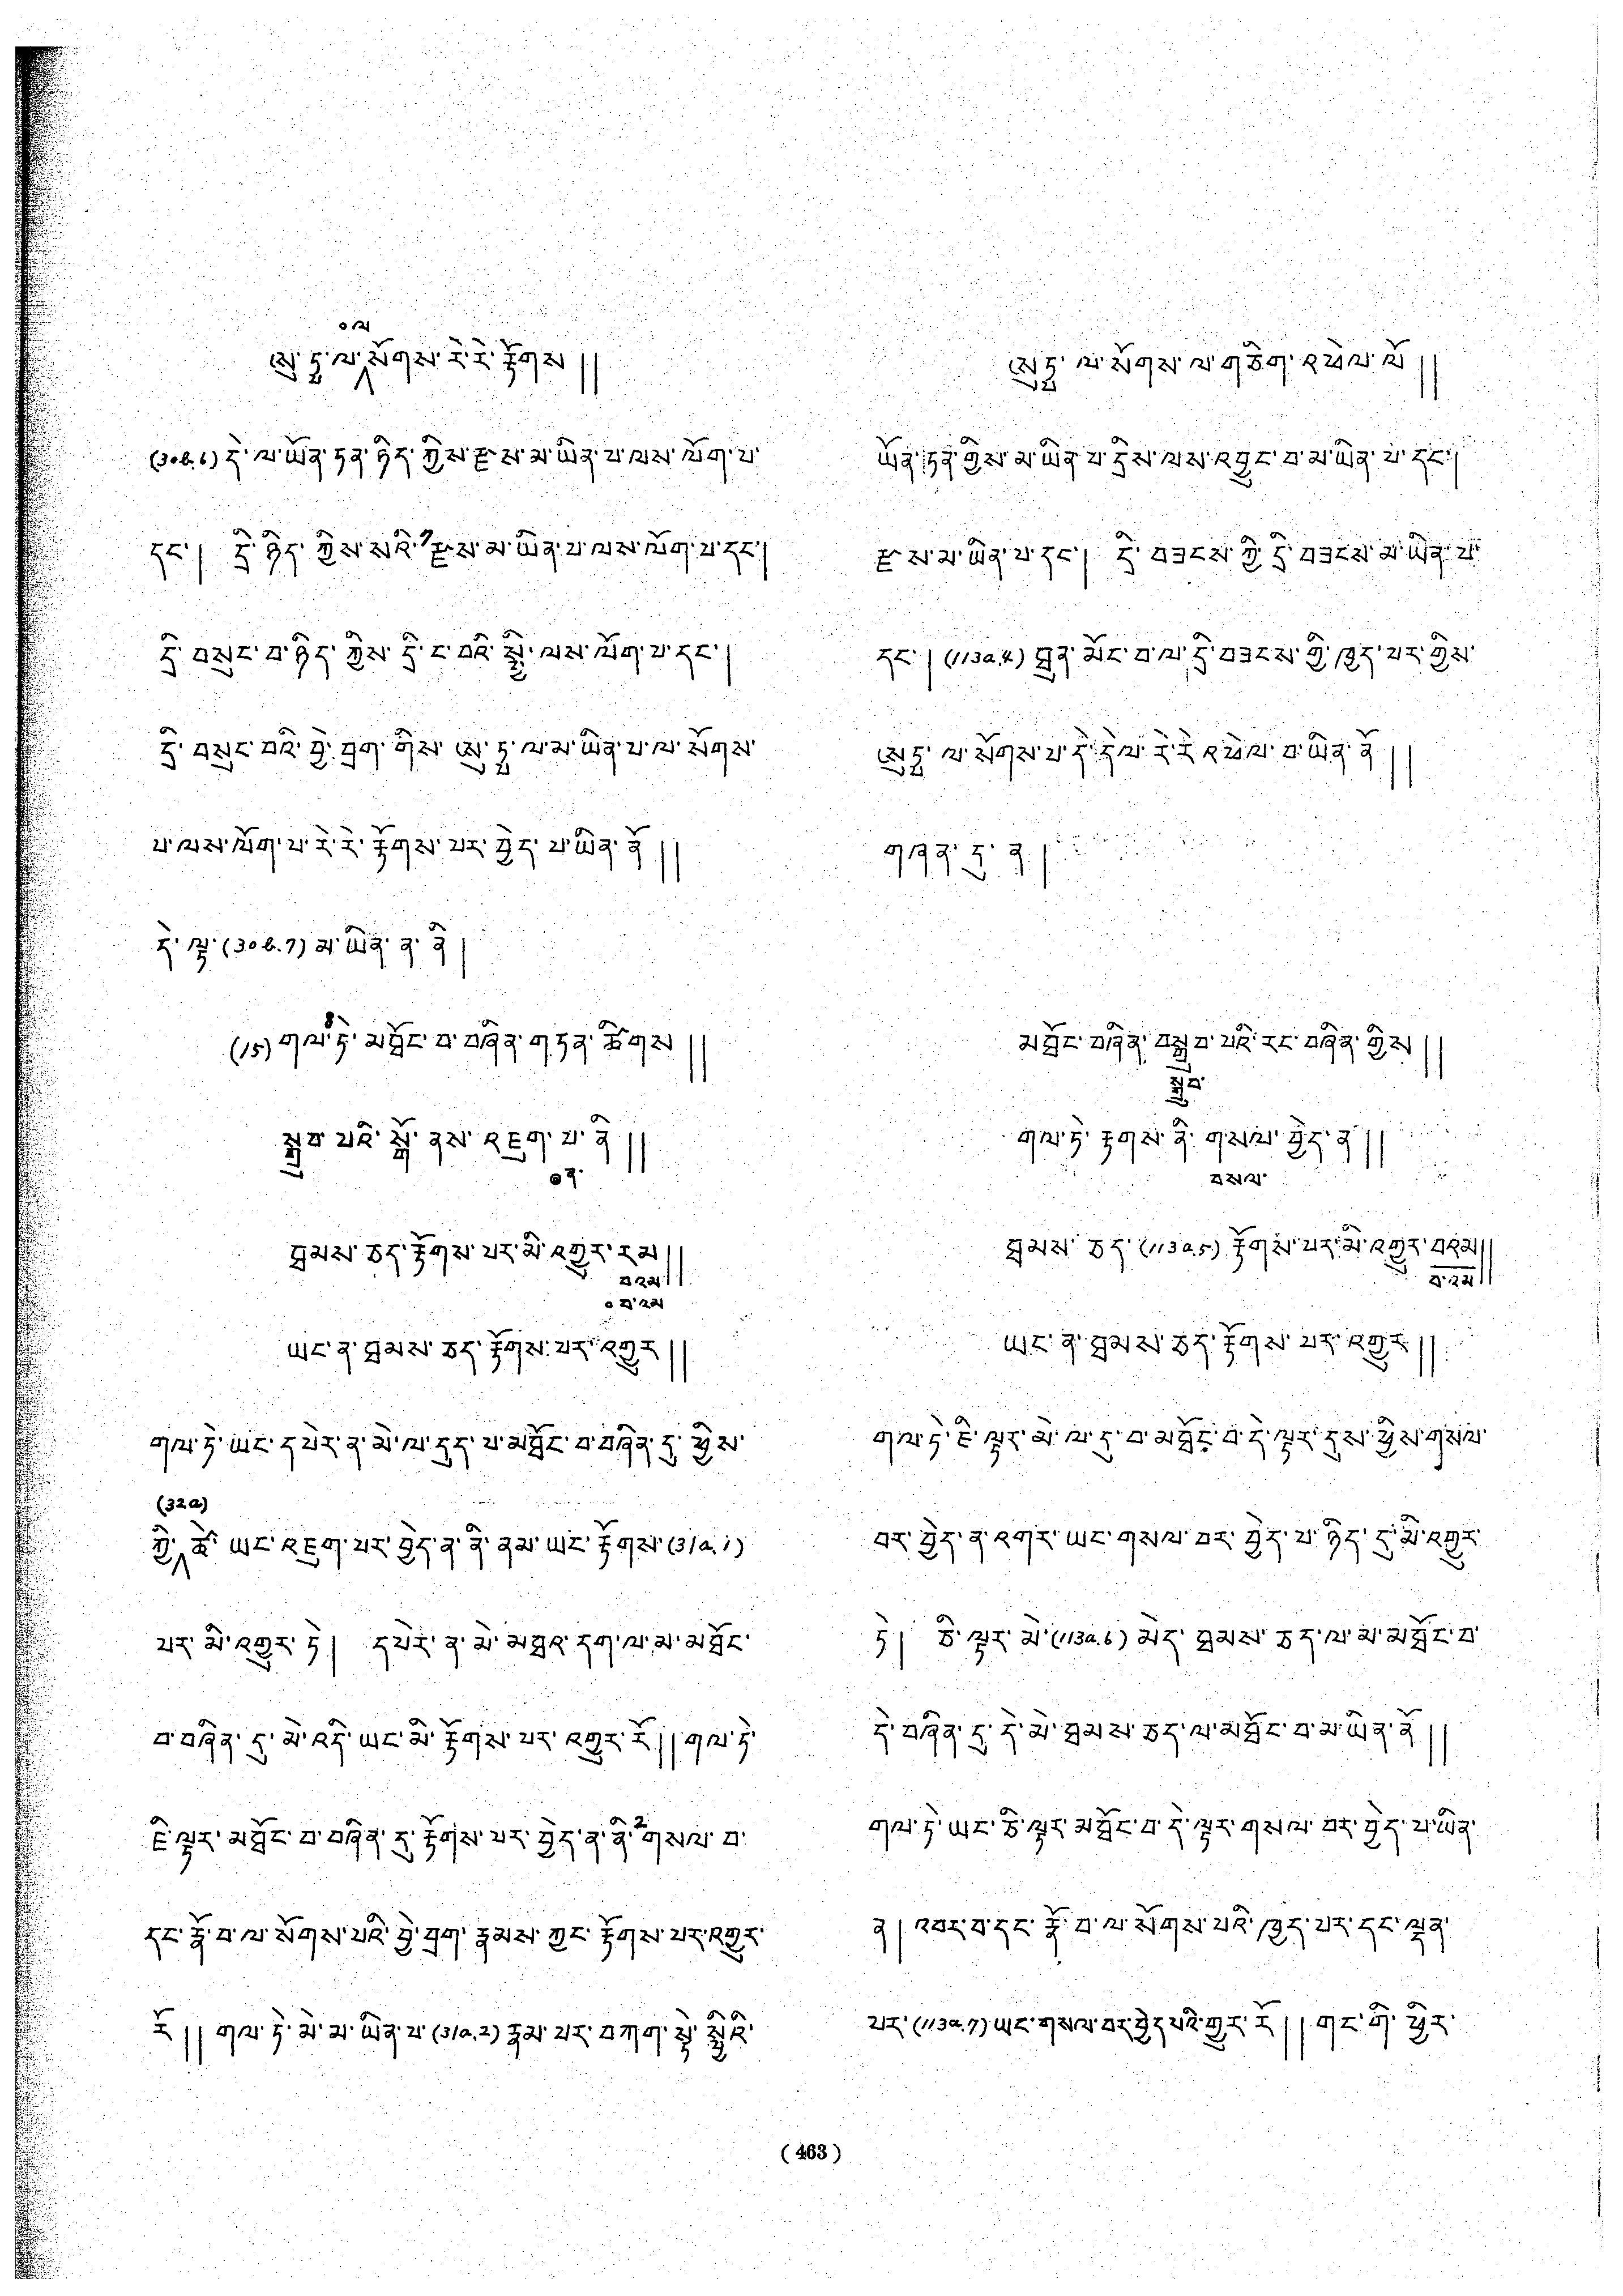 ༠ལ
ཨུཏྤལ་སོགས་རེ་རེ་རྟོགས།།
(30b.6) དེ་ལ་ཡོན་ཏན་ཉིད་ཀྱིས་རྫས་མ་ཡིན་པ་ལས་ལོག་པ་
དང་། དྲི་ཉིད་ཀྱིས་སའི་1རྫས་མ་ཡིན་པ་ལས་ལོག་པ་དང་།
དྲི་བསུང་བ་ཉིད་ཀྱིས་དྲི་ང་བའི་སྤྱི་ལས་ལོག་པ་དང་།
དྲི་བསུང་བའི་བྱེ་བྲག་གིས་ཨུཏྤལ་མ་ཡིན་པ་ལ་སོགས་
པ་ལས་ལོག་པ་རེ་རེ་རྟོགས་པར་བྱེད་པ་ཡིན་ནོ།།
དེ་ལྟ་(30b.7)མ་ཡིན་ན་ནི།
(15) གལ་ཏེ་མཐོང་བ་བཞིན་གཏན་ཚིགས།།
སྒྲུབ་པའི་སྒོ་ནས་འཇུག་པ་ནི།།
༠ན་
ཐམས་ཅད་རྟོགས་པར་མི་འགྱུར་རམ།།
བའམ
༠བ་འམ
ཡང་ན་ཐམས་ཅད་རྟོགས་པར་འགྱུར།།
གལ་ཏེ་ཡང་དཔེར་ན་མེ་ལ་དུད་པ་མཐོང་བ་བཞིན་དུ་ཕྱིས་
(32a)
ཀྱི་ཚེ་ཡང་འཇུག་པར་བྱེད་ན་ནི་ནམ་ཡང་རྟོགས་(31a.1)
པར་མི་འགྱུར་ཏེ། དཔེར་ན་མེ་མཐའ་དག་ལ་མ་མཐོང་
བ་བཞིན་དུ་མེ་འདི་ཡང་མི་རྟོགས་པར་འགྱུར་རོ།། གལ་ཏེ་
ཇི་ལྟར་མཐོང་བ་བཞིན་དུ་རྟོགས་པར་བྱེད་ན་ནི་2གསལ་བ་
དང་རྣོ་བ་ལ་སོགས་པའི་བྱེ་བྲག་རྣམས་ཀྱང་རྟོགས་པར་འགྱུར་
རོ།། གལ་ཏེ་མེ་མ་ཡིན་པ་(31a.2)རྣམ་པར་བཀག་སྟེ་སྤྱིའི་
ཨུཏྤ་ལ་སོགས་ལ་གཅིག་འཕེལ་ལོ།།
ཡོན་ཏན་གྱིས་མ་ཡིན་པ་དྲིས་ལས་འབྱུང་བ་མ་ཡིན་པ་དང་།
རྫས་མ་ཡིན་པ་དང་། དྲི་བཟངས་ཀྱི་དྲི་བཟངས་མ་ཡིན་པ་
དང་། (113a.4) ཐུན་མོང་བ་ལ་དྲི་བཟངས་ཀྱི་ཁྱད་པར་གྱིས་
ཨུཏྤ་ལ་སོགས་པ་དེ་དེལ་རེ་རེ་འཕེལ་བ་ཡིན་ནོ།།
གཞན་དུ་ན།
མཐོང་བཞིན་བསྒྲུབ་པའི་རང་བཞིན་གྱིས།།
སྒྲུབ་
གལ་ཏེ་རྟགས་ནི་གསལ་བྱེད་ན།།
བསལ་
ཐམས་ཅད་(113a.5)རྟོགས་པར་མི་འགྱུར་བའམ།།
བ་འམ
ཡང་ན་ཐམས་ཅད་རྟོགས་པར་འགྱུར།།
གལ་ཏེ་ཇི་ལྟར་མེ་ལ་དུ་བ་མཐོང་བ་དེ་ལྟར་དུས་ཕྱིས་གསལ་
བར་བྱེད་ན་འགར་ཡང་གསལ་བར་བྱེད་པ་ཉིད་དུ་མི་འགྱུར་
ཏེ། ཅི་ལྟར་མེ་(113a.6)མེད་ཐམས་ཅད་ལ་མ་མཐོང་བ་
དེ་བཞིན་དུ་དེ་མེ་ཐམས་ཅད་ལ་མཐོང་བ་མ་ཡིན་ནོ།།
གལ་ཏེ་ཡང་ཅི་ལྟར་མཐོང་བ་དེ་ལྟར་གསལ་བར་བྱེད་པ་ཡིན་
ན། འབར་བ་དང་རྣོ་བ་ལ་སོགས་པའི་ཁྱད་པར་དང་ལྡན་
པར་(113a.7)ཡང་གསལ་བར་བྱེད་པའི་གྱུར་རོ།། གང་གི་ཕྱིར་
(463)